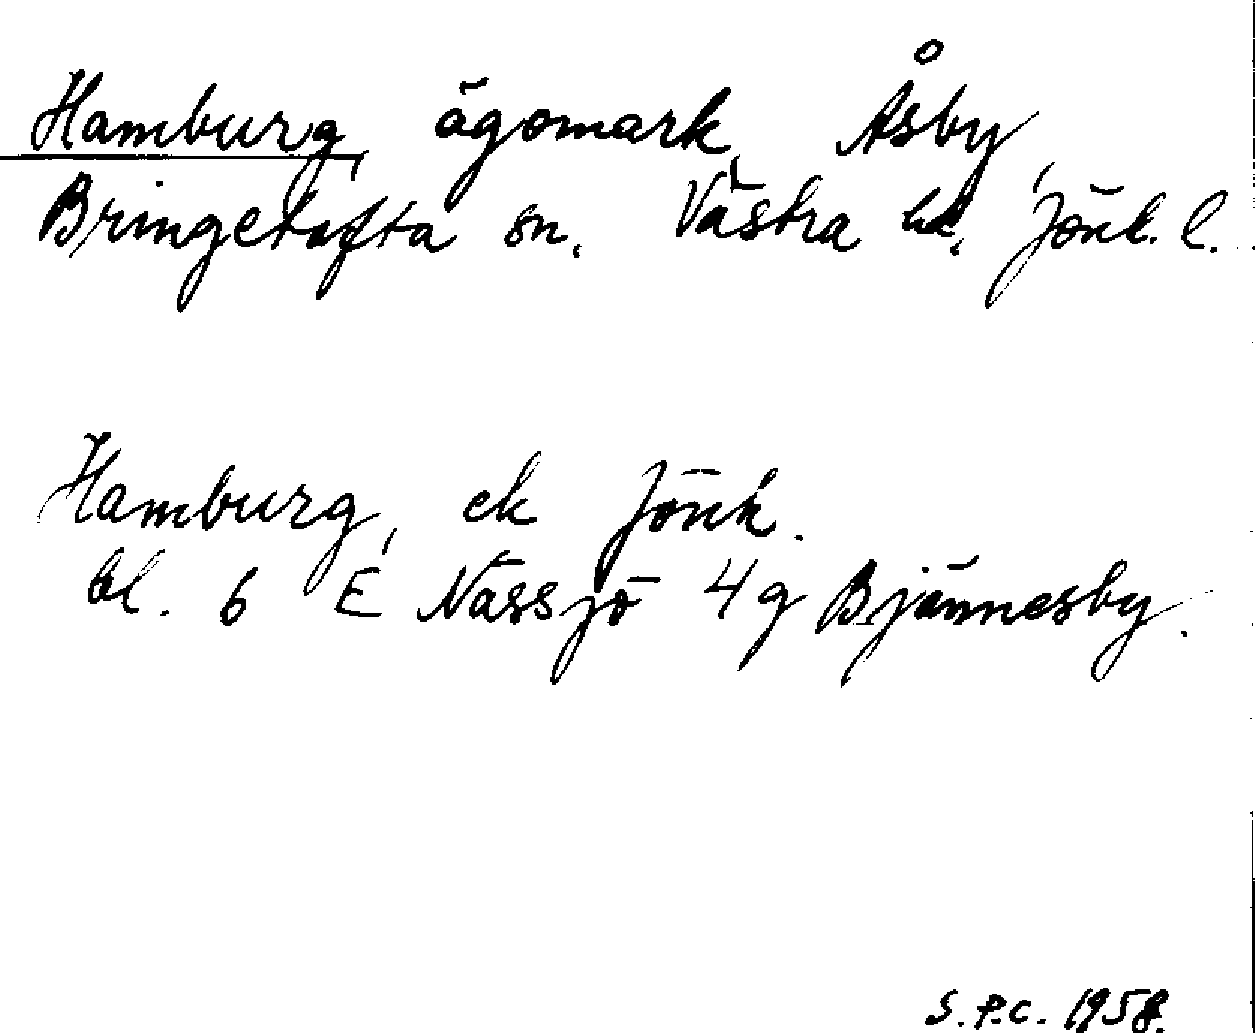 Hamburg, ägomark, Åsby,
Bringetofta sn. Västra hd. Jönk. l.
Hamburg, ek Jönk.
bl. 6 E Nässjö 4 g Bjännesby.
S.P.C. 1958.